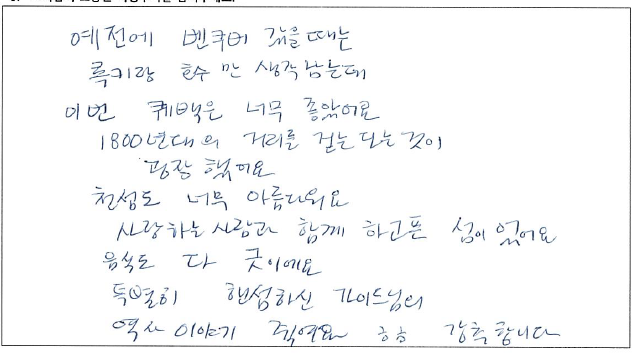 예전에 벤쿠버 갔을때는
록키랑 호수 만 생각 났는데
이번 퀘백은 너무 좋았어요
1800년대의 거리를 걷는 다는 것이
굉장 했어요
천섬도 너무 아름다워요
사랑하는 사람과 함께 하고픈 섬이 였어요
음식도 다 굿이에요
특별히 핸섬하신 가이드님의
역사 이야기 죽여요 ㅎㅎ 강추합니다